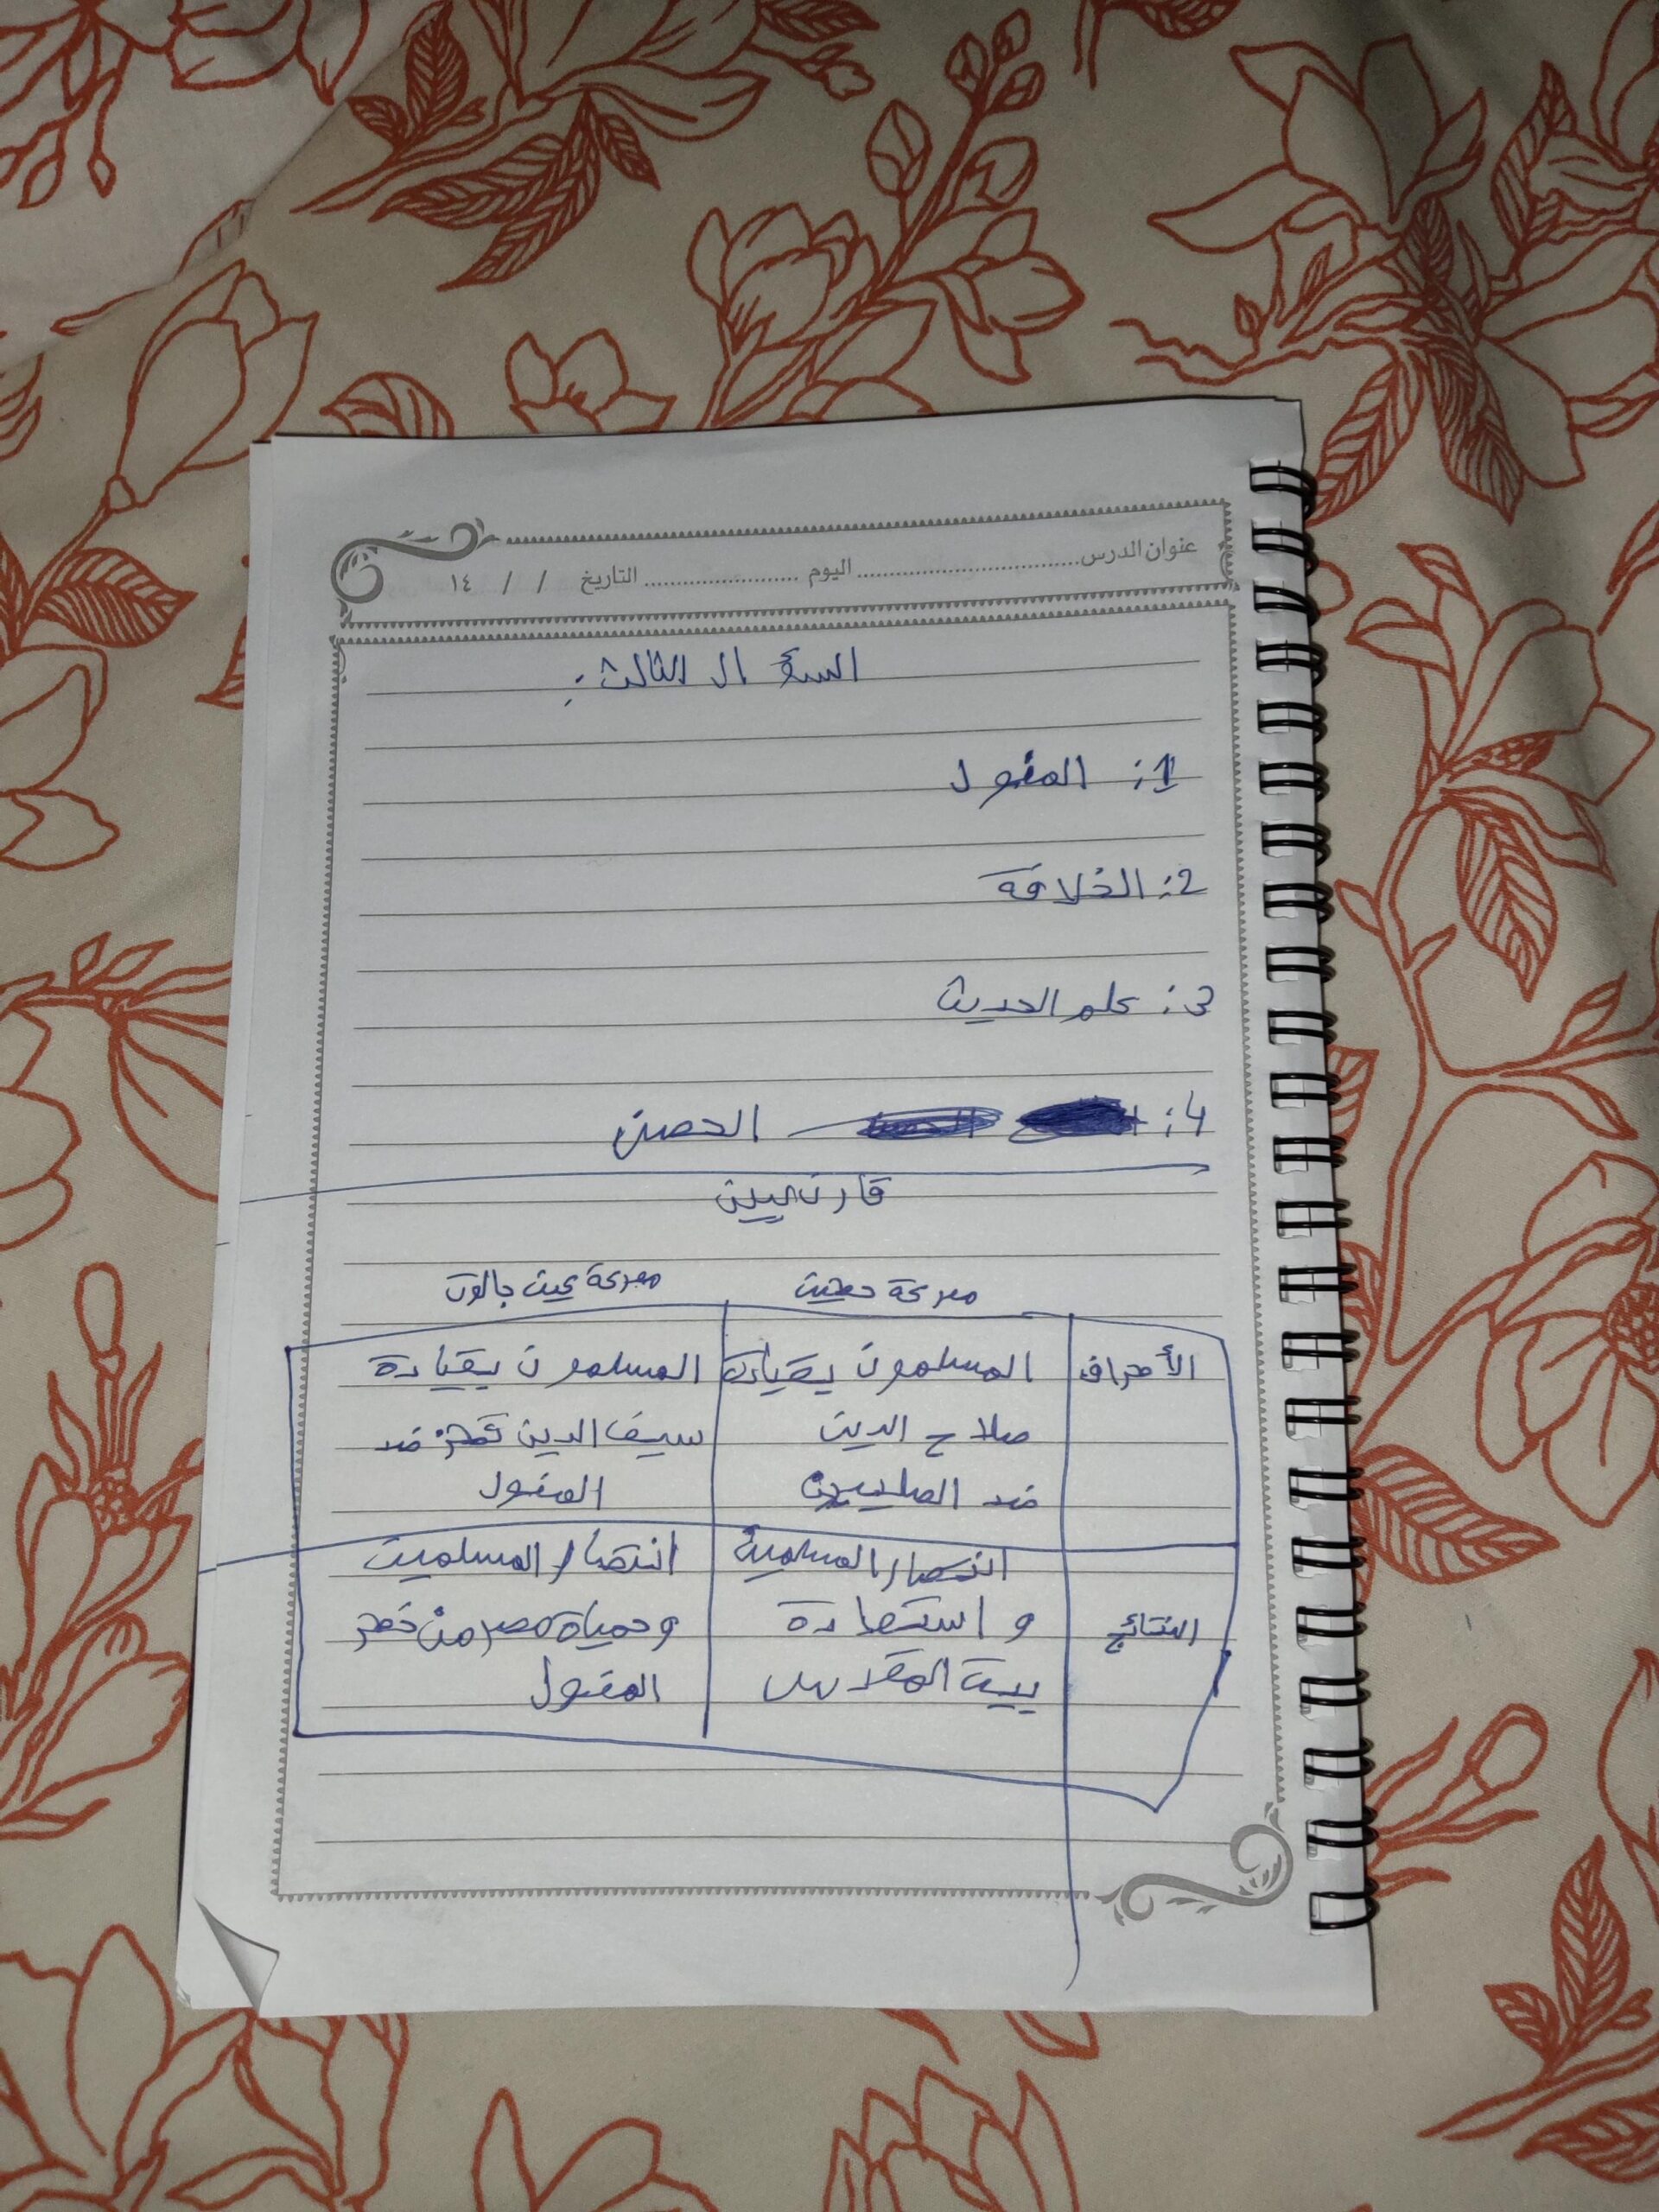 عنوان الدرس........................ اليوم ................ التاريخ / / ١٤
السؤال الثالث:
1: المغول
2: الخلافة
3: علم الحديث
4: الحصن
قارن بين
معركة حطين معركة عين جالوت
الأطراف المسلمون بقيادة المسلمون بقيادة
صلاح الدين سيف الدين قطز ضد
ضد الصليبين المغول
انتصار المسلمين انتصار المسلمين
النتائج و استعادة وحمياة مصر من خطر
بيت المقدس المغول